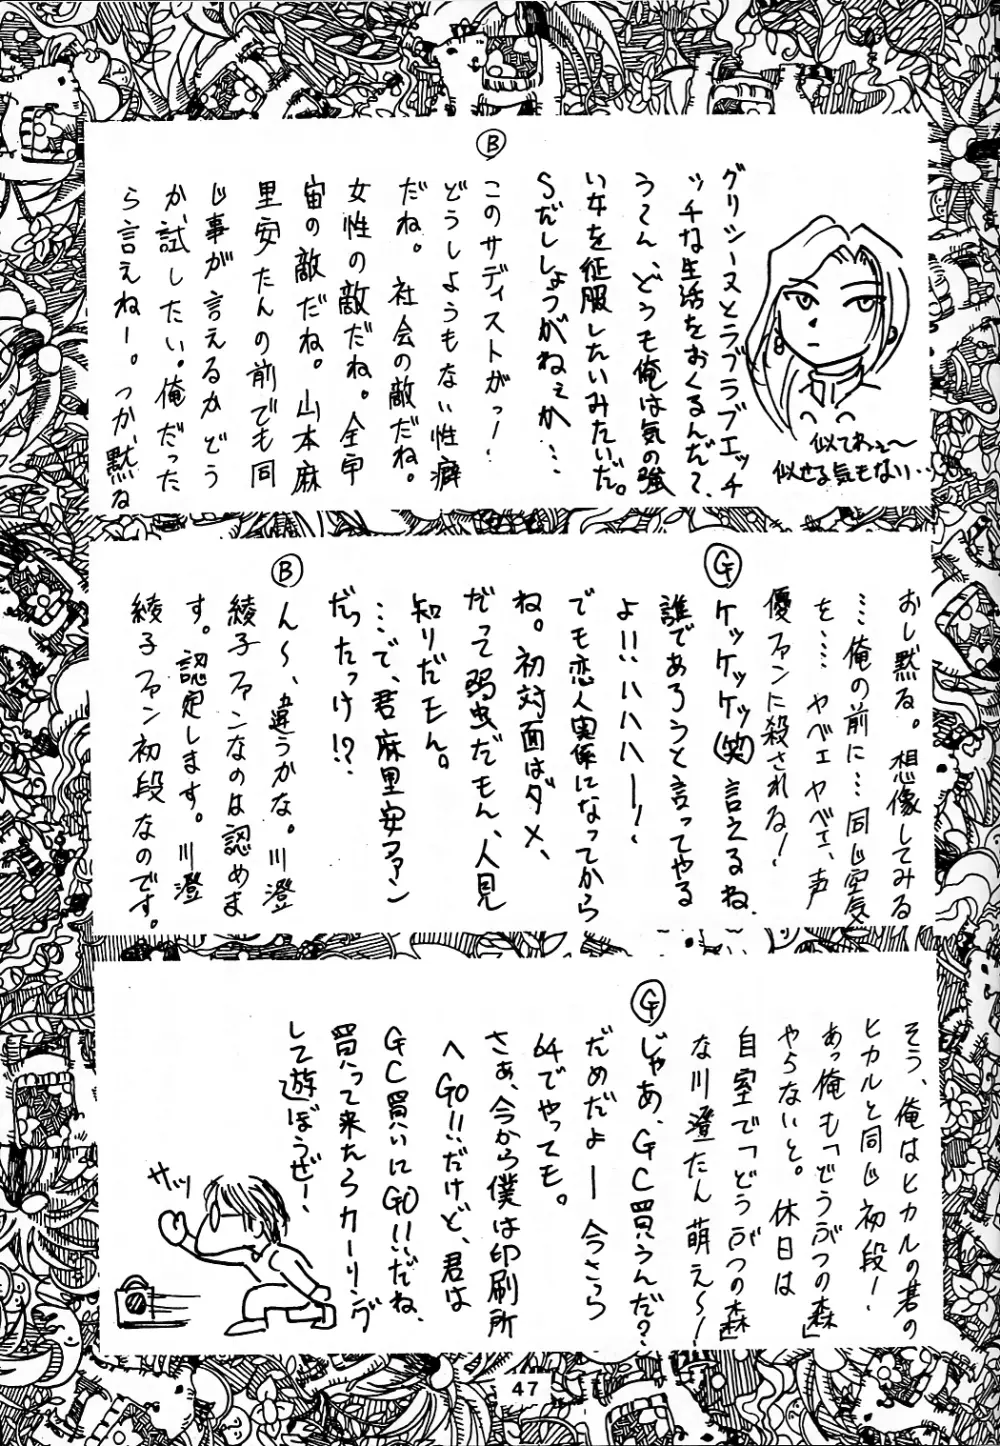 グリシーヌとラブラブエッチ
ッチな生活をおくるんだ?
うーん、どうも俺は気の強
い女を征服したいみたいだ。
Sだししょうがねぇか…
似てねぇ〜
似せる気もない…
Ⓑ
このサディストがっ!
どうしようもない性癖
だね。社会の敵だね。
女性の敵だね。全宇
宙の敵だね。山本麻
里安たんの前でも同
じ事が言えるかどう
か試したい。俺だった
ら言えねー。つか、黙る
おし黙る。想像してみる
…俺の前に…同じ空気
を……ヤベェヤベェ、声
優ファンに殺される!
Ⓖ
ケッケッケッ(笑)言えるね、
誰であろうと言ってやる
よ!!ハハハー!
でも恋人関係になってから
ね。初対面はダメ、
だって弱虫だもん、人見
知りだモん。
…で、君麻里安ファン
だったっけ!?
Ⓑ
ん〜、違うかな。川澄
綾子ファンなのは認めま
す。認定します。川澄
綾子ファン初段なのです。
そう、俺はヒカルの碁の
ヒカルと同じ初段!
あっ俺も「どうぶつの森」
やらないと。休日は
自室で「どうぶつの森」
な川澄たん萌え〜!
Ⓖ
じゃあ、GC買うんだ?
だめだよー今さら
64でやっても。
さぁ、今から僕は印刷所
へGO!!だけど、君は
GC買いにGO!!だね、
買って来たらカーリング
して遊ぼうぜ!
サッ
47